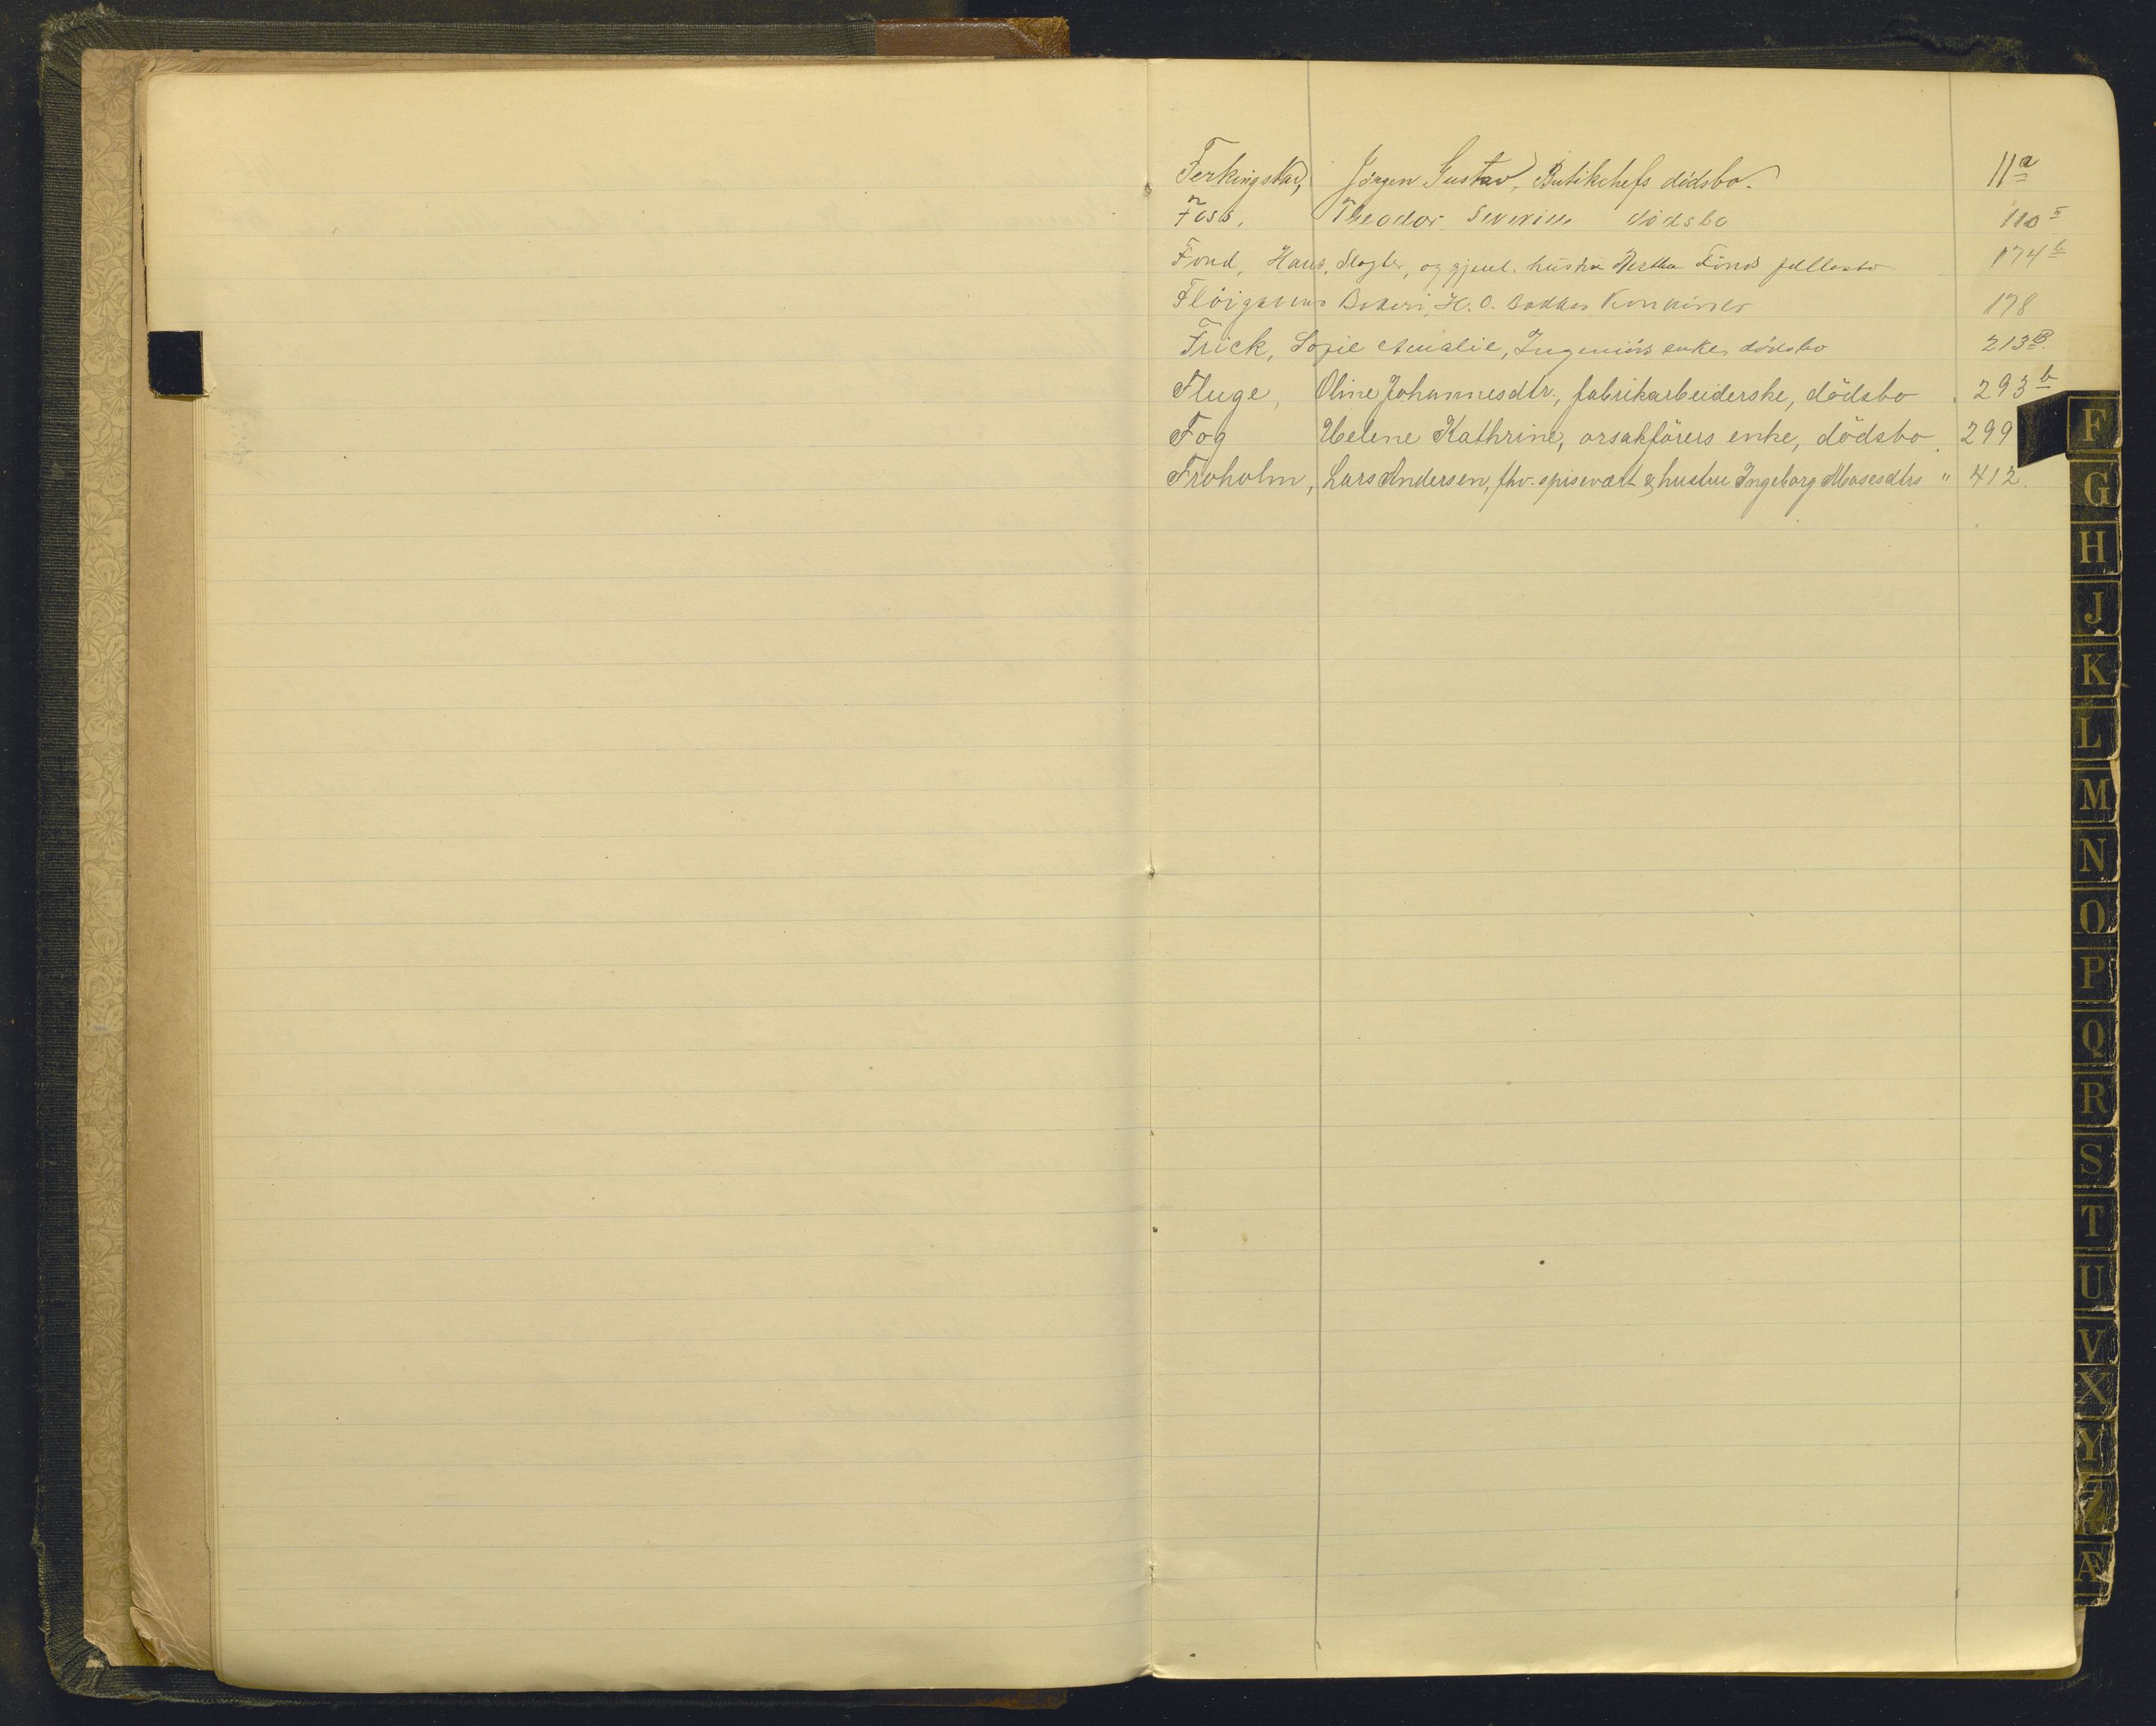 Ferkingstad, Jörgen Gustav, Butikchefs dödsbo. 11a
Foss, Theodor Severin dödsbo 110
Fond, Hans, Slagter, og gjenl. hustru Fonds fellesbo 174b
Flöigatens Bakeri, H. O. Bakkes Konkursbo 178
Frick, Sofie Amalie, Ingeniörs enkes dödsbo 213B
Fluge, Oline Johannesdtr., fabrikarbeiderske, dödsbo 293b
Fog Helene Kathrine, orsakförers enke, dödsbo. 299
Froholm, Lars Andersen, fhv. spisevært & hustru Ingeborg Mosesdtrs " 412.
F
G
H
J
K
L
M
N
O
P
Q
R
S
T
U
V
X
Y
Z
Æ